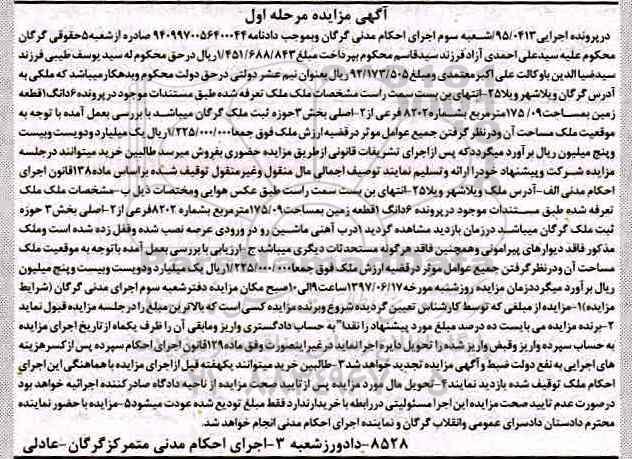 آگهی مزایده مرحله اول
درپرونده اجرایی۹۵/۰۴۱۳/شعبه سوم اجرای احکام مدنی گرگان وبموجب دادنامه۹۴۰۹۹۷۰۰۵۶۴۰۰۰۴۴ صادره ازشعبه۵حقوقی گرگان
محکوم علیه سیدعلی احمدی آزادفرزند سیدقاسم محکوم بپرداخت مبلغ۱/۴۵۱/۶۸۸/۸۴۳ریال درحق محکوم له سید یوسف طیبی فرزند
سیدضیاالدین باوکالت علی اکبرمعتمدی ومبلغ۹۲/۱۷۳/۵۰۵ریال بعنوان نیم عشر دولتی درحق دولت محکوم وبدهکارمیباشد که ملکی به
آدرس گرگان ویلاشهر ویلا۲۵-انتهای بن بست سمت راست مشخصات ملک ملک تعرفه شده طبق مستندات موجود درپرونده۶دانگ۱قطعه
زمین بمساحت۱۷۵/۰۹مترمربع بشماره۸۲۰۲فرعی از۲-اصلی بخش۳حوزه ثبت ملک گرگان میباشد با بررسی بعمل آمده با توجه به
موقعیت ملک مساحت آن ودرنظر گرفتن جمیع عوامل موثر درقضیه ارزش ملک فوق جمعا۱/۲۲۵/۰۰۰/۰۰۰ریال یک میلیارد ودویست وبیست
وپنج میلیون ریال بر آورد میگرددکه پس ازاجرای تشریفات قانونی ازطریق مزایده حضوری بفروش میرسد طالبین خرید میتوانند درجلسه
مزایده شرکت وپیشنهاد خودرا ارائه وتسلیم نمایند توصیف اجمالی مال منقول وغیرمنقول توقیف شده براساس ماده۱۳۸قانون اجرای
احکام مدنی الف-آدرس ملک ویلاشهر ویلا۲۵-انتهای بن بست سمت راست طبق عکس هوایی ومختصات ذیل ب-مشخصات ملک ملک
تعرفه شده طبق مستندات موجود درپرونده ۶دانگ ۱قطعه زمین بمساحت۱۷۵/۰۹مترمربع بشماره ۸۲۰۲فرعی از۲-اصلی بخش۳ حوزه
ثبت ملک گرگان میباشد درزمان بازدید مشاهده گردید ۱درب آهنی ماشین رو در ورودی عرصه نصب شده وقفل زده شده است وملک
مذکور فاقد دیوارهای پیرامونی وهمچنین فاقد هرگونه مستحدثات دیگری میباشد ج-ارزیابی با بررسی بعمل آمده باتوجه به موقعیت ملک
مساحت آن ودرنظر گرفتن جمیع عوامل موثر درقضیه ارزش ملک فوق جمعا۱/۲۲۵/۰۰۰/۰۰۰ریال یک میلیارد ودویست وبیست وپنج میلیون
ریال برآورد میگرددزمان مزایده روزشنبه مورخه۱۳۹۷/۰۶/۱۷ساعت۹الی۱۰صبح مکان مزایده دفترشعبه سوم اجرای مدنی گرگان (شرایط
مزایده)۱-مزایده از مبلغی که توسط کارشناس تعیین گردیده شروع وبرنده مزایده کسی است که بالاترین مبلغ رادرجلسه مزایده قبول نماید
۲-برنده مزایده می بایست ده درصد مبلغ مورد پیشنهاد را نقدا" به حساب دادگستری واریز ومابقی آن را ظرف یکماه از تاریخ اجرای مزایده
به حساب سپرده واریز وقبض واریز شده را تحویل دایره اجرانماید درغیراینصورت وفق ماده۱۲۹قانون اجرای احکام سپرده پس از کسرهزینه
های اجرایی به نفع دولت ضبط وآگهی مزایده تجدید خواهد شد۳-طالبین خرید میتوانند یکهفته قبل ازاجرای مزایده با هماهنگی این اجرای
احکام ملک توقیف شده بازدید نمایند۴-تحویل مال مورد مزایده پس از تایید صحت مزایده از ناحیه دادگاه صادرکننده اجرائیه خواهد بود
درصورت عدم تایید صحت مزایده این اجرا مسئولیتی دررابطه با خریدارندارد فقط مبلغ تودیع شده عودت میشود۵-مزایده با حضور نماینده
محترم دادستان دادسرای عمومی وانقلاب گرگان و نماینده اجرای احکام مدنی انجام خواهد شد.
۸۵۲۸-دادورزشعبه ۳-اجرای احکام مدنی متمرکزگرگان-عادلی